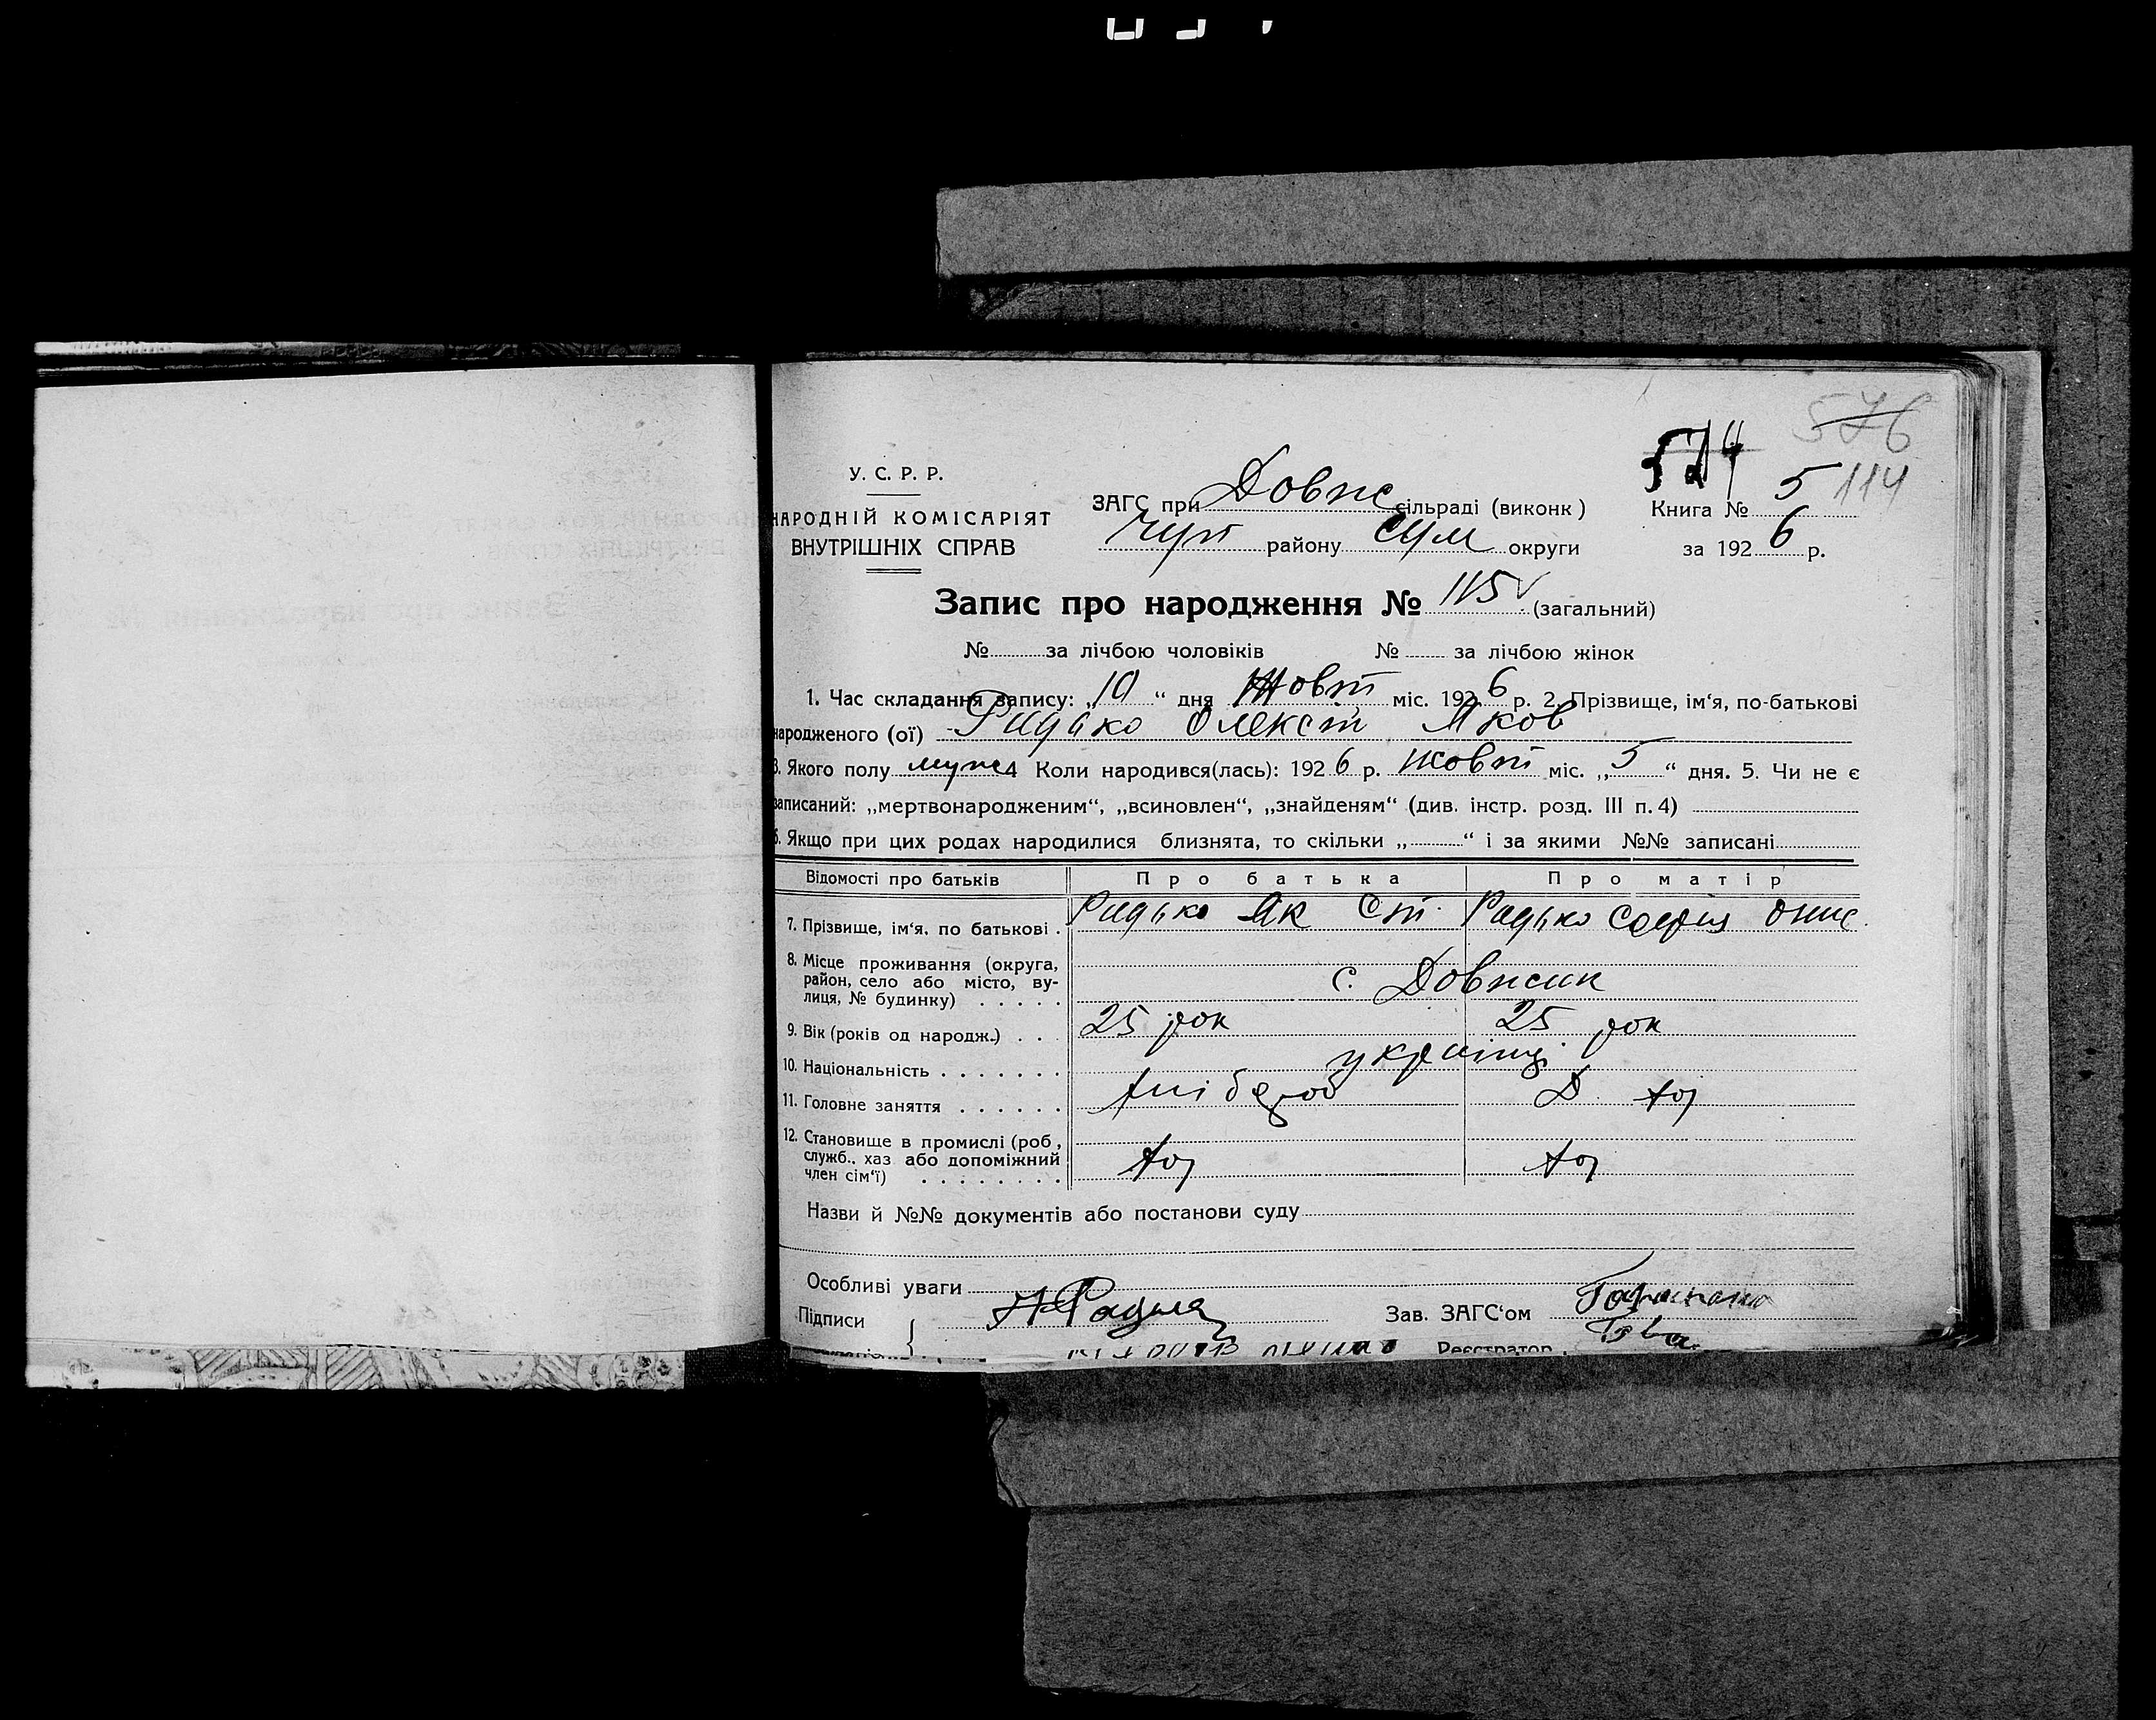 576
574
У. С. Р. Р.
НАРОДНІЙ КОМІСАРІЯТ
ВНУТРІШНІХ СПРАВ
ЗАГС при Довж сільраді (виконк)
Чуп району Сум округи
Книга № 5 114
за 1926 р.
Запис про народження № 115 (загальний)
№ за лічбою чоловіків № за лічбою жінок
1. Час складання запису: „10“ дня Жовт міс. 1926 р. 2. Прізвище, ім‘я, по-батькові
народженого (ої) Радько Олексій Яков
3. Якого полу муж 4 Коли народився(лась): 1926 р. Жовт міс. „5“ дня. 5. Чи не є
записаний: „мертвонародженим“, „всиновлен“, „знайденям“ (див. інстр. розд. III п. 4)
6. Якщо при цих родах народилися близнята, то скільки „ “ і за якими №№ записані
Відомості про батьків Про батька Про матір
7. Прізвище, ім‘я, по батькові . Радько Як Ст. Радько София Онис.
8. Місце проживання (округа,
район, село або місто, ву-
лиця, № будинку) . . . . . с. Довжик
9. Вік (років од народж.) . . . 25 рок 25 рок
10. Національність . . . . . . . украінці
11. Головне заняття . . . . . . хлібороб Д. хоз
12. Становище в промислі (роб,
служб., хаз або допоміжний
член сім‘ї) . . . . . . . . хоз хоз
Назви й №№ документів або постанови суду
Особливі уваги
Підписи Зав. ЗАГС‘ом
Реєстратор